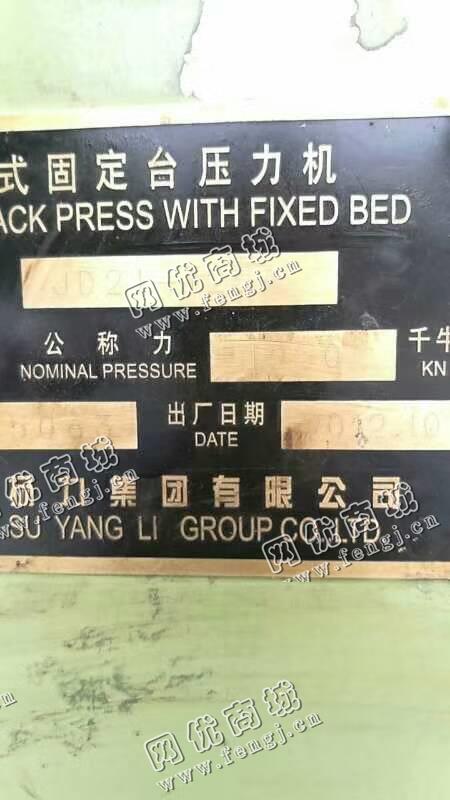 式固定台压力机
ACK PRESS WITH FIXED BED
JD21
公称力 千牛
NOMINAL PRESSURE KN
出厂日期
DATE
力集团有限公司
SU YANG LI GROUP CO.,LTD
网优商城
www.fengj.cn
网优商城
www.fengj.cn
网优商城
www.fengj.cn
网优商城
www.fengj.cn
网优商城
www.fengj.cn